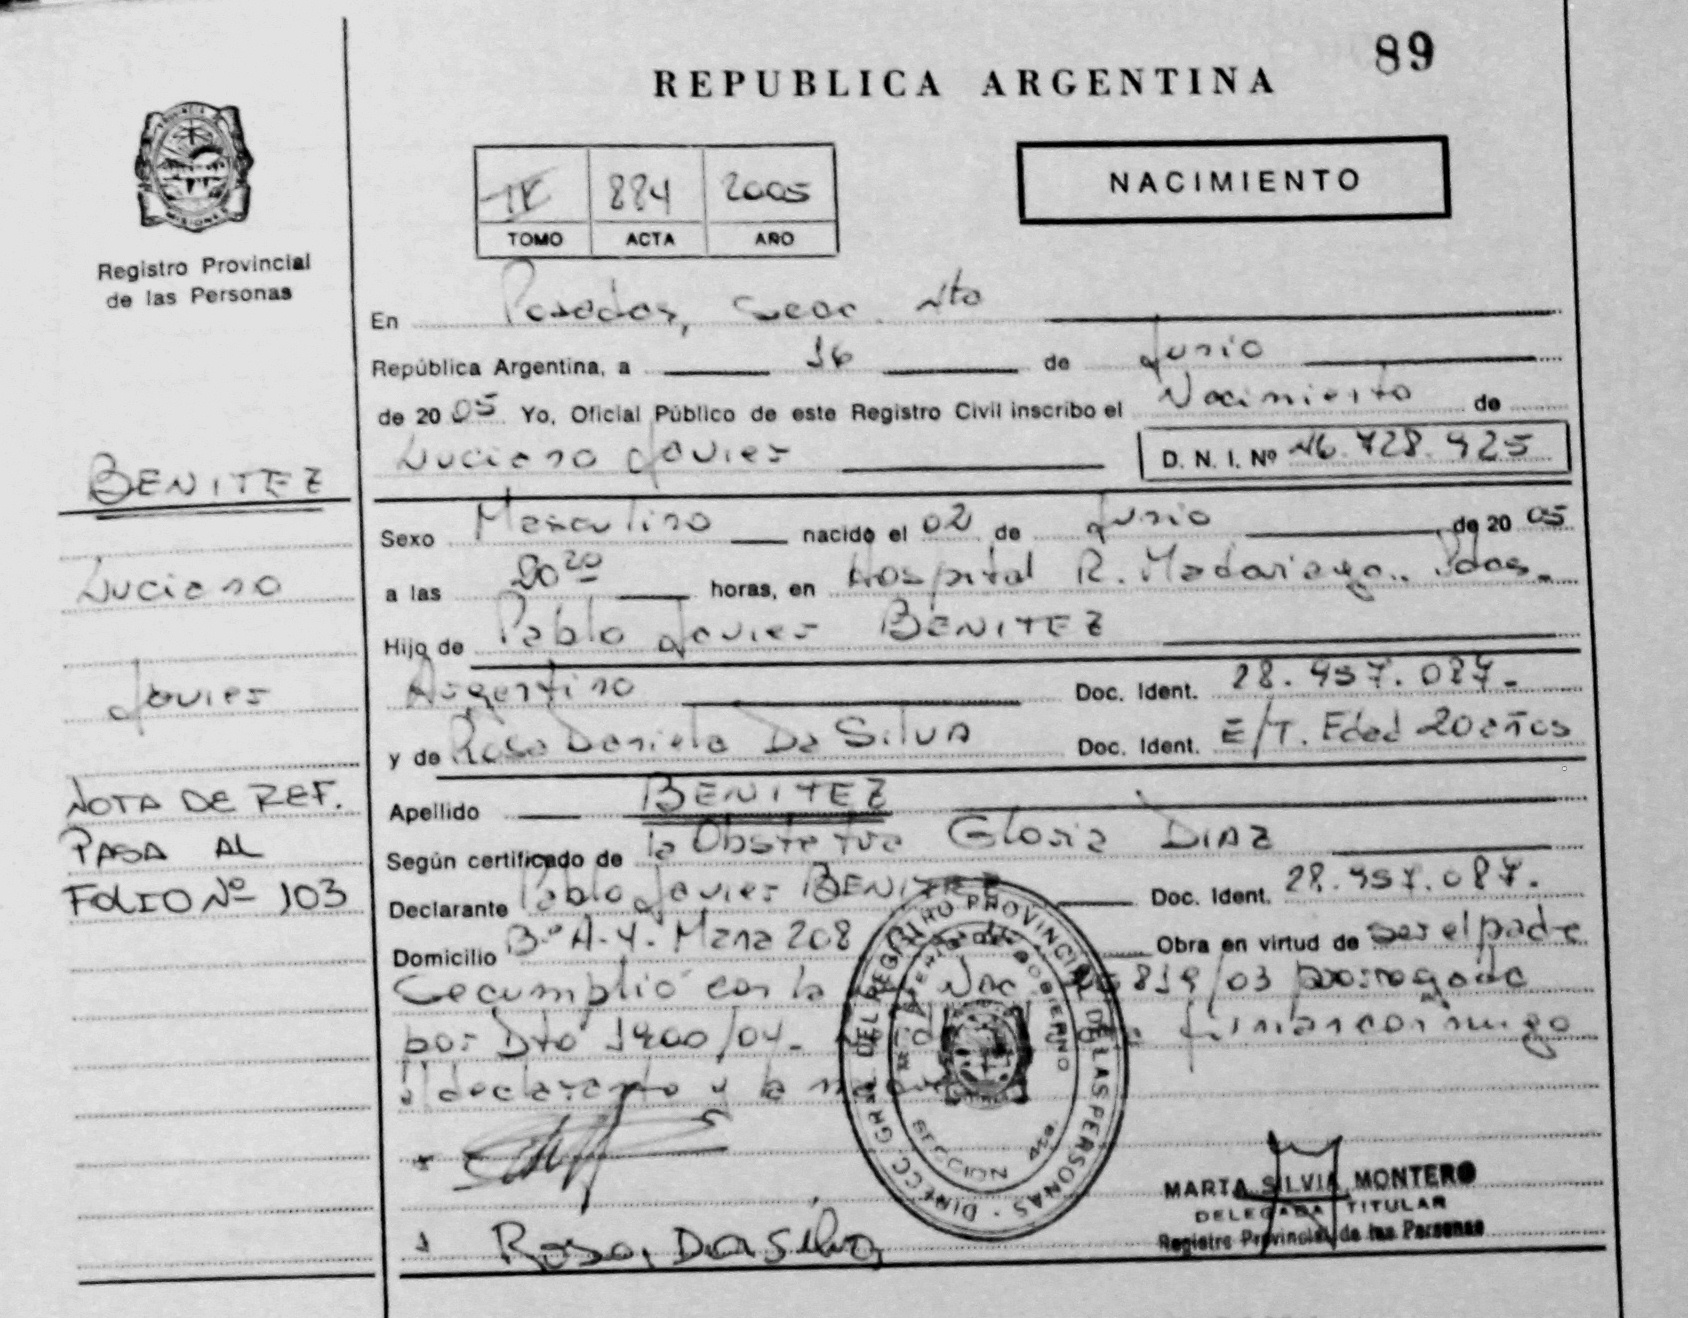 89
REPUBLICA ARGENTINA
NACIMIENTO
884 2005
TOMO ACTA AÑO
Registro Provincial
de las Personas
MISIONES
En Posadas, Secc. 4ta
República Argentina, a 16 de Junio
de 2005 Yo, Oficial Público de este Registro Civil inscribo el Nacimiento de
Luciano Javier D. N. I. Nº 46.428.925
BENITEZ
Luciano
Javier
NOTA DE REF.
PASA AL
FOLIO Nº 103
Sexo Masculino nacido el 02 de Junio de 2005
a las 20 20 horas, en Hospital R. Madariaga.. Pdas.
Hijo de Pablo Javier BENITEZ
Argentino Doc. Ident. 28.457.087.
y de Rosa Daniela Da Silva Doc. Ident. E/T. Edad 20 años
Apellido BENITEZ
Según certificado de la Obstetra Gloria DIAZ
Declarante Pablo Javier BENITEZ Doc. Ident. 28.457.087.
Domicilio Bº A-4. Mzna 208 Obra en virtud de ser el padre
Se cumplió con la 819/03 prorrogada
por Dto 1900/04. firman conmigo
el declarante y la madre
Rosa, Da Silva
DIRECC GRAL DEL REGISTRO PROVINCIAL DE LAS PERSONAS
MINISTERIO DE GOBIERNO
SECCION 4ta
MARTA SILVIA MONTERO
DELEGADA TITULAR
Registro Provincial de las Personas